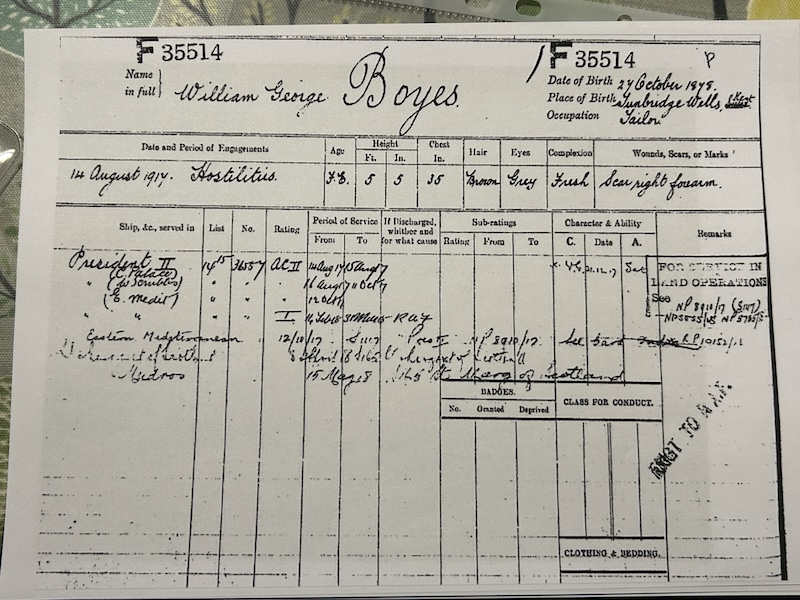 F 35514
F 35514
P
Name in full William George Boyes.
Date of Birth 27 October 1878.
Place of Birth Tunbridge Wells, Kent
Occupation Tailor
Date and Period of Engagements
Age
Height
Ft. In.
Chest In.
Hair
Eyes
Complexion
Wounds, Scars, or Marks
14 August 1917. Hostilities.
F.E.
5 5 35 Brown Grey Fresh Scar right forearm.
Ship, &c., served in
List
No.
Rating
Period of Service
From To
If Discharged, whither and for what cause
Sub-ratings
Rating From To
Character & Ability
C. Date A.
Remarks
President II 14 15 36557 AC II 14 Aug 17 15 Aug 17
(C. Palace)
V.G. 31.12.17 Sat
FOR SERVICE IN LAND OPERATIONS
See NP 8910/17
" (W. Scrubbs) " " " 16 Aug 17 11 Oct 17
" (E. Medit) " " " 12 Oct 17
" " " " I 31 RAF
Eastern Mediterranean 12/10/17 NP 8910/17
8 April 18
Mudros 15 May 18 of Scotland
BADGES.
No. Granted Deprived
CLASS FOR CONDUCT.
TO R.A.F.
CLOTHING & BEDDING.